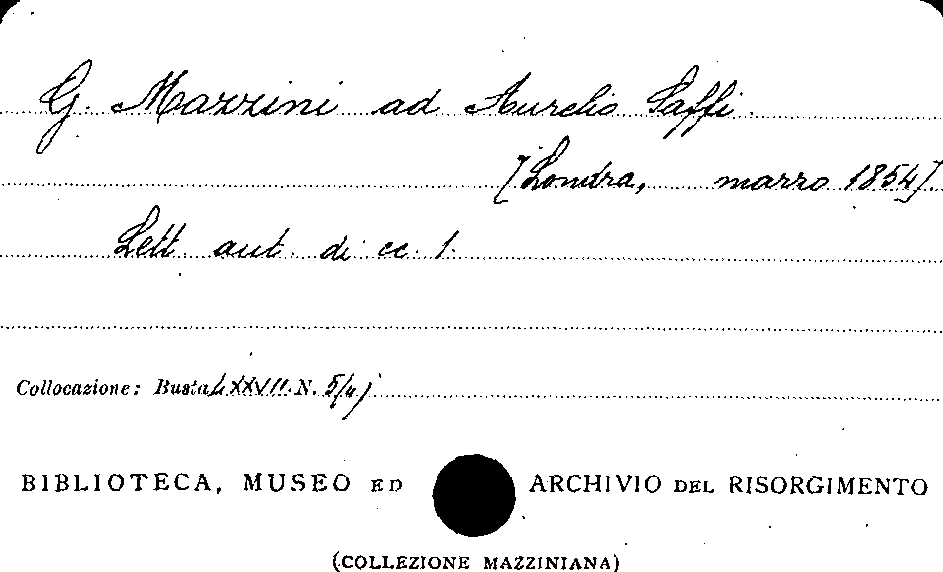 G. Mazzini ad Aurelio Saffi.
[Londra, marzo 1854].
Lett. aut. di cc. 1.
Collocazione: Busta LXXVII N. 5/4)
BIBLIOTECA, MUSEO ED ARCHIVIO DEL RISORGIMENTO
(COLLEZIONE MAZZINIANA)